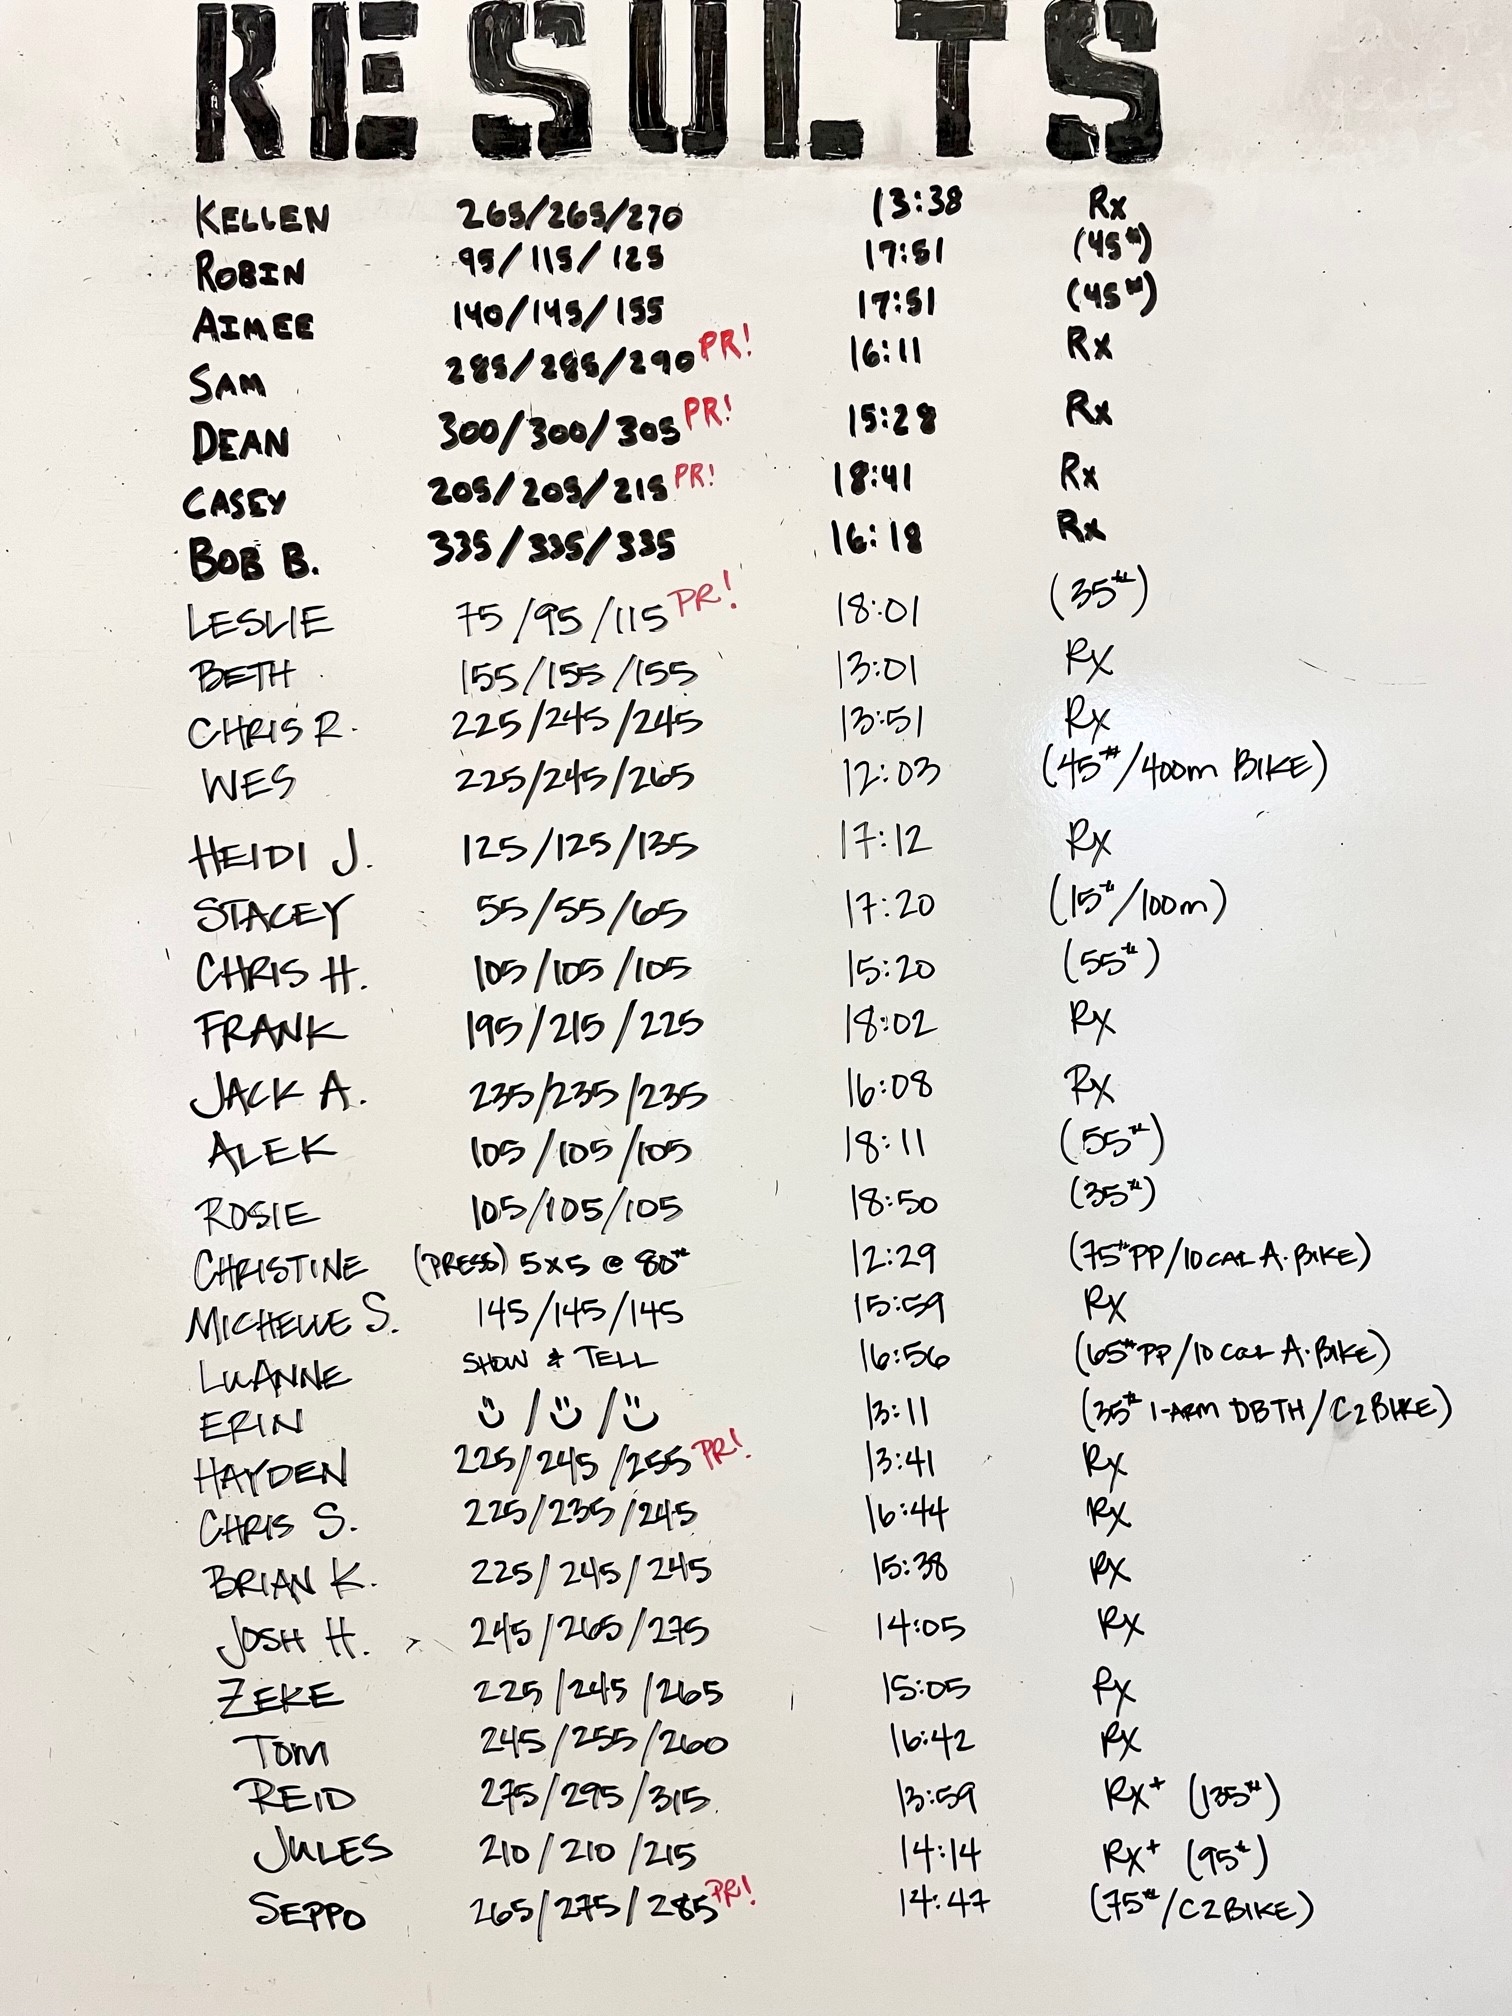 RESULTS
KELLEN 265/265/270 13:38 Rx
ROBIN 95/115/125 17:51 (45#)
AIMEE 140/145/155 17:51 (45#)
SAM 285/285/290 PR! 16:11 Rx
DEAN 300/300/305 PR! 15:28 Rx
CASEY 205/205/215 PR! 18:41 Rx
BOB B. 335/335/335 16:18 Rx
LESLIE 75/95/115 PR! 18:01 (35#)
BETH 155/155/155 13:01 Rx
CHRIS R. 225/245/245 13:51 Rx
WES 225/245/265 12:03 (45#/400m BIKE)
HEIDI J. 125/125/135 17:12 Rx
STACEY 55/55/65 17:20 (15#/100m)
CHRIS H. 105/105/105 15:20 (55#)
FRANK 195/215/225 18:02 Rx
JACK A. 235/235/235 16:08 Rx
ALEK 105/105/105 18:11 (55#)
ROSIE 105/105/105 18:50 (35#)
CHRISTINE (PRESS) 5x5 @ 80# 12:29 (75# PP/10 CAL A.BIKE)
MICHELLE S. 145/145/145 15:59 Rx
LUANNE SHOW & TELL 16:56 (65# PP/10 CAL A.BIKE)
ERIN / / 13:11 (35# 1-ARM DBTH/C2 BIKE)
HAYDEN 225/245/255 PR! 13:41 Rx
CHRIS S. 225/235/245 16:44 Rx
BRIAN K. 225/245/245 15:38 Rx
JOSH H. 245/265/275 14:05 Rx
ZEKE 225/245/265 15:05 Rx
TOM 245/255/260 16:42 Rx
REID 275/295/315 13:59 Rx+ (135#)
JULES 210/210/215 14:14 Rx+ (95#)
SEPPO 265/275/285 PR! 14:47 (75#/C2 BIKE)